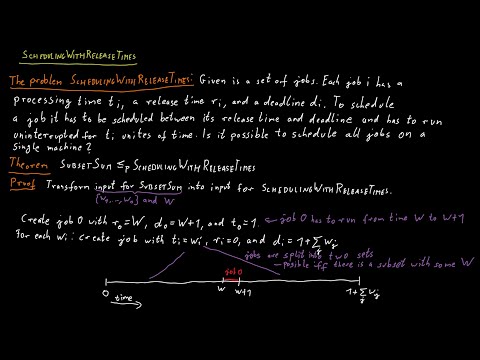 SCHEDULINGWITHRELEASETIMES
The problem SCHEDULINGWITHRELEASETIMES: Given is a set of jobs. Each job i has a
processing time tᵢ, a release time rᵢ, and a deadline dᵢ. To schedule
a job it has to be scheduled between its release time and deadline and has to run
uninterrupted for tᵢ unites of time. Is it possible to schedule all jobs on a
single machine?
Theorem SUBSETSUM ≤ₚ SCHEDULINGWITHRELEASETIMES
Proof Transform input for SUBSETSUM into input for SCHEDULINGWITHRELEASETIMES.
{w₁,...,wₙ} and W
Create job 0 with r₀=W, d₀=W+1, and t₀=1. ← job 0 has to run from time W to W+1
For each wᵢ: create job with tᵢ=wᵢ, rᵢ=0, and dᵢ=1+∑ⱼ wⱼ
jobs are split into two sets
- posible iff there is a subset with some W
job 0
0 W W+1 1+∑ⱼ wⱼ
time